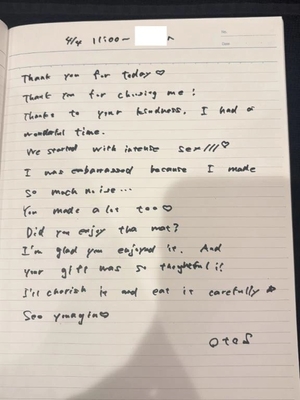 4/4 11:00-
No.
Date
Thank you for today♡
Thank you for choosing me!
Thanks to your kindness. I had a
wonderful time.
We started with intense sex///♡
I was embarrassed because I made
so much noise...
You made a lot too♡
Did you enjoy the mat?
I'm glad you enjoyed it. And
your gift was so thoughtful!!
I'll cherish it and eat it carefully
See you again♡